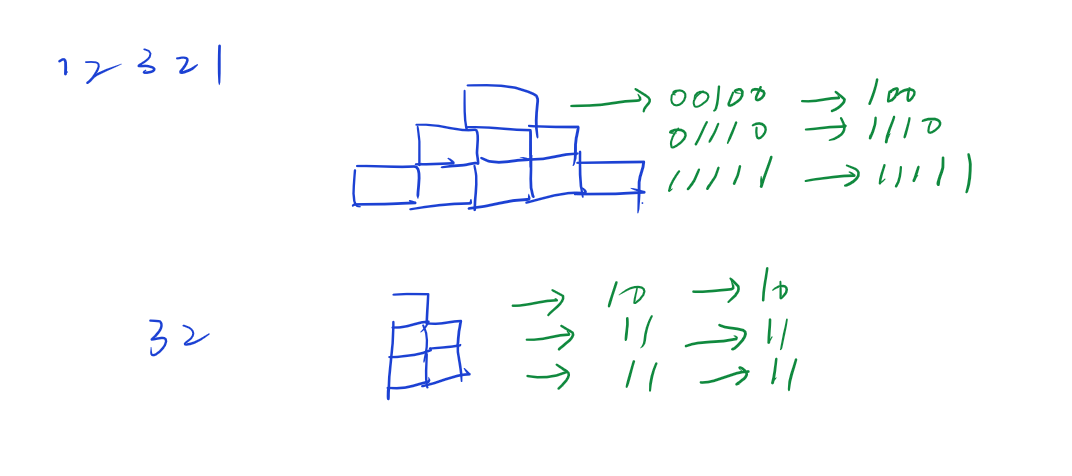 1 2 3 2 1
→ 00100 → 100
01110 → 1110
11111 → 11111
3 2
→ 10 → 10
→ 11 → 11
→ 11 → 11